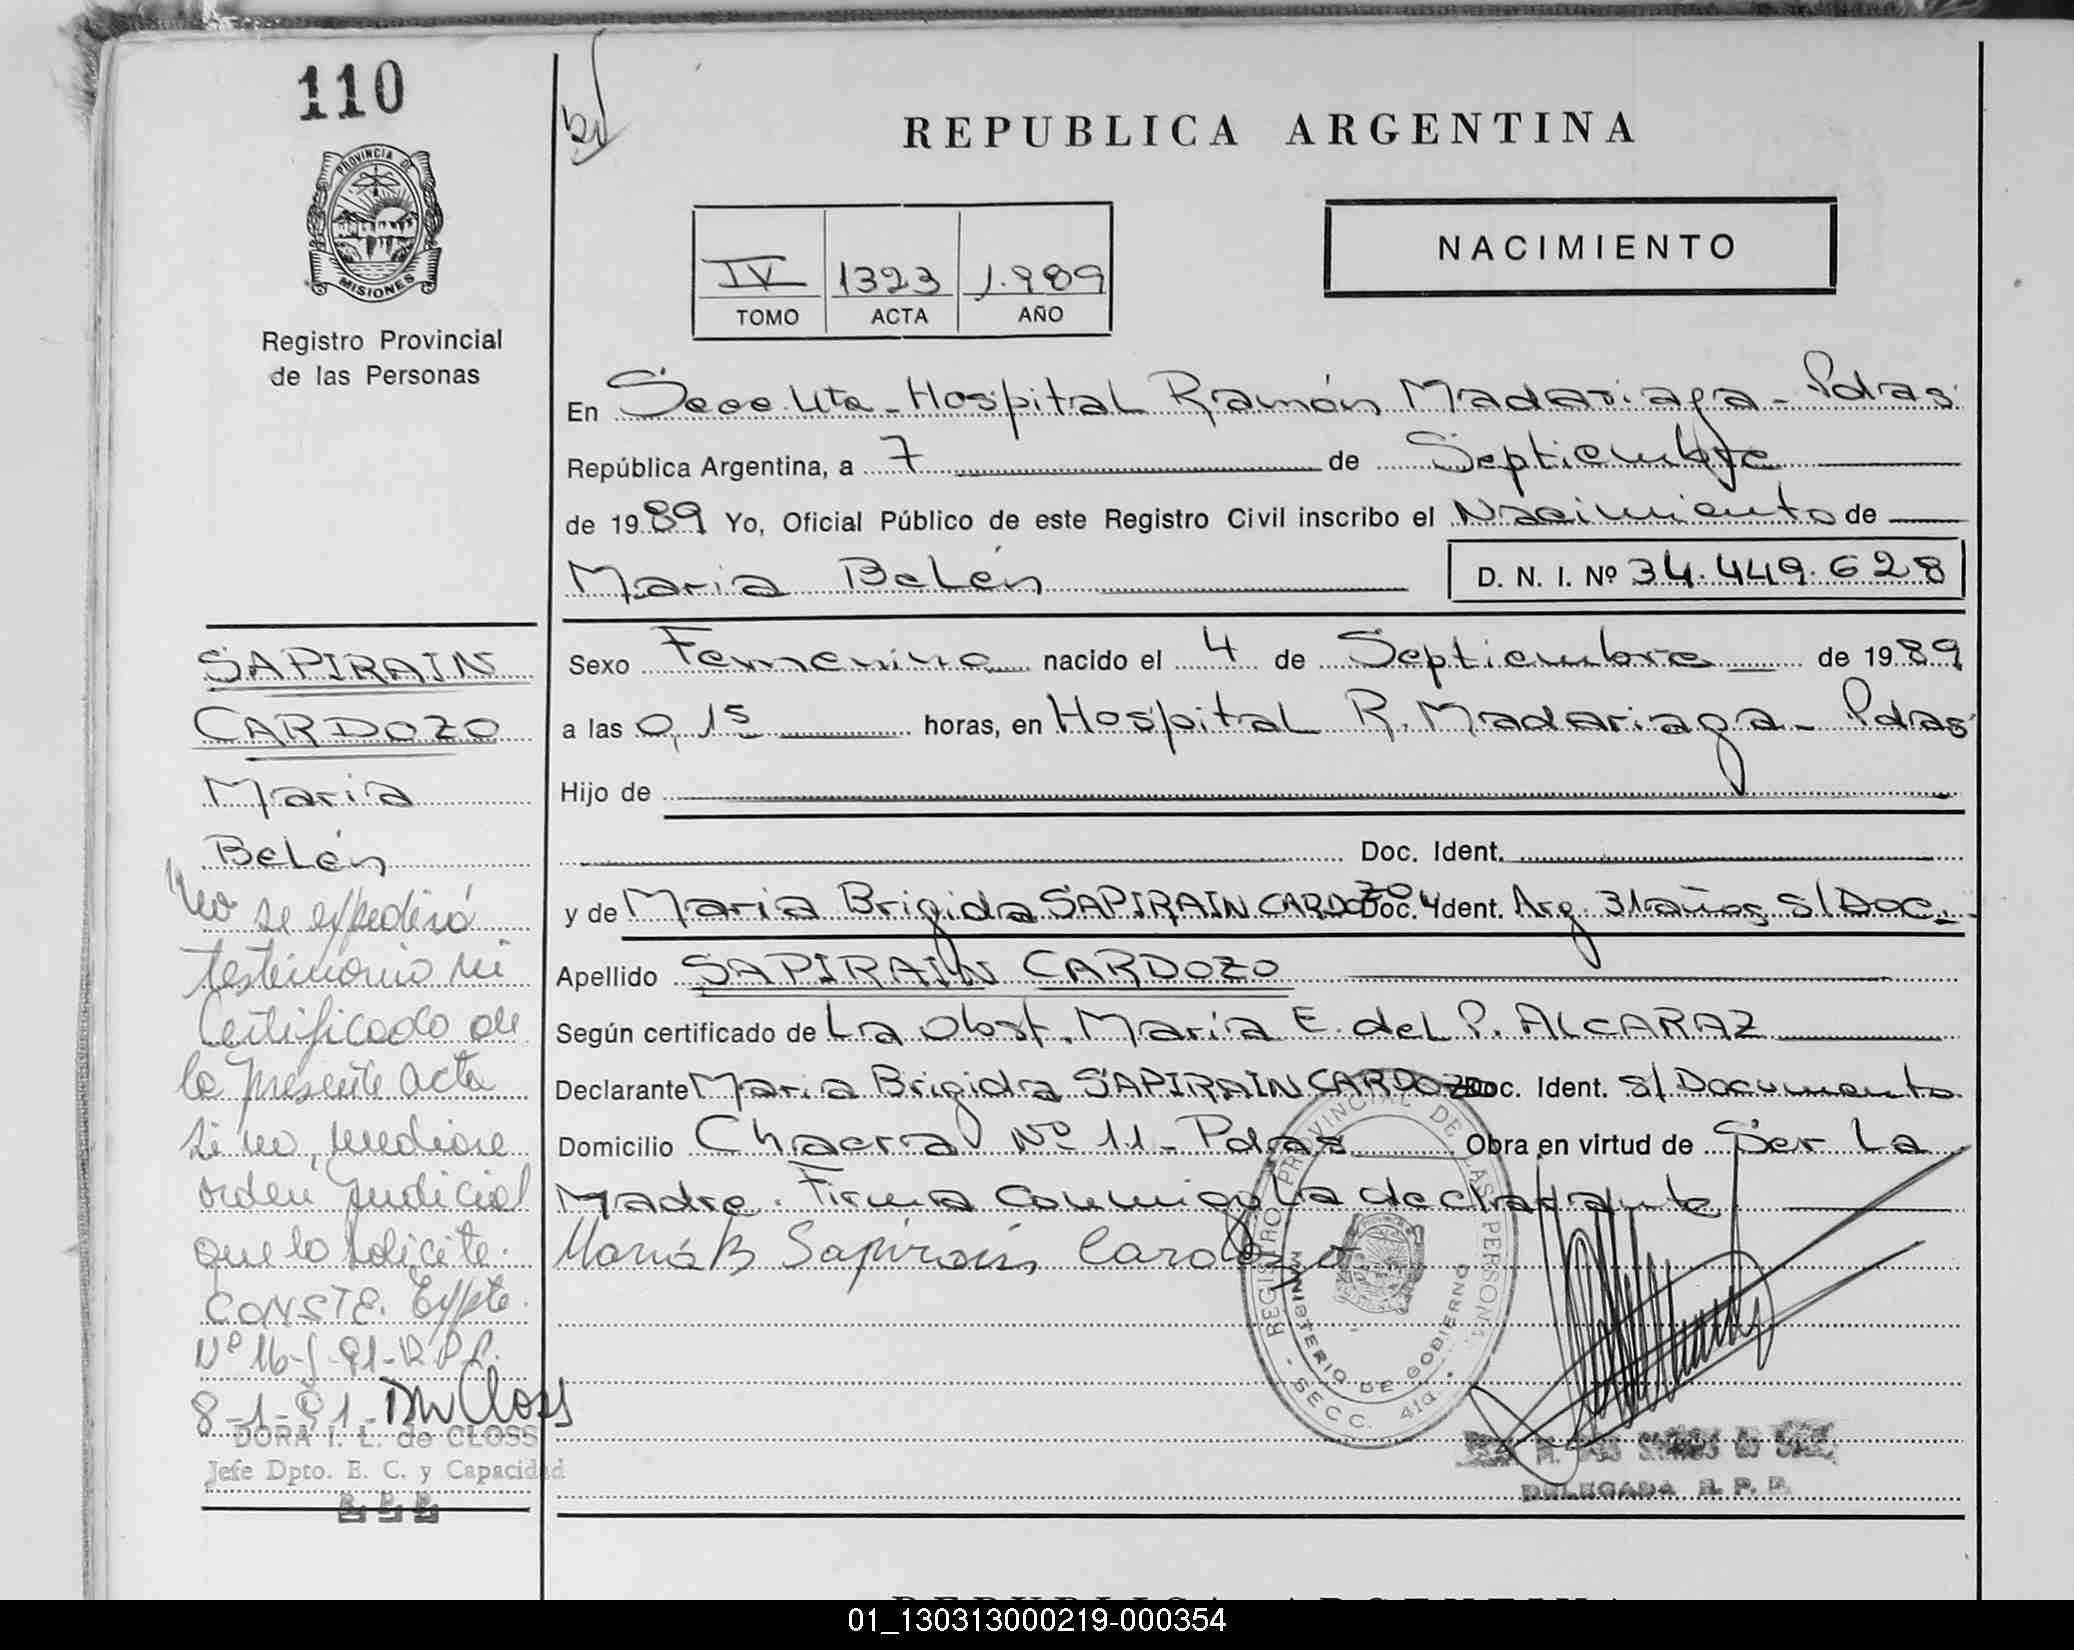 110
PROVINCIA DE
MISIONES
Registro Provincial
de las Personas
REPUBLICA ARGENTINA
IV 1323 1.989
TOMO ACTA AÑO
NACIMIENTO
En Secc. 4ta - Hospital Ramón Madariaga - Pdas.
República Argentina, a 7 de Septiembre
de 1989 Yo, Oficial Público de este Registro Civil inscribo el Nacimiento de
Maria Belén D. N. I. Nº 34.449.628
SAPIRAIN
CARDOZO
Maria
Belén
No se expedirá
testimonio ni
Certificado de
la presente acta
si no, mediare
orden judicial
que lo solicite.
CONSTE. Expte.
Nº 16-J-91-R.P.P.
8-1-91-
DORA I. L. de CLOSS
Jefe Dpto. E. C. y Capacidad
R. P. P.
Sexo Femenino nacido el 4 de Septiembre de 1989
a las 0,15 horas, en Hospital R. Madariaga - Pdas
Hijo de
Doc. Ident.
y de Maria Brigida SAPIRAIN CARDOZO Doc. Ident. Arg. 31 años S/Doc.
Apellido SAPIRAIN CARDOZO
Según certificado de La Obst. María E. del P. ALCARAZ
Declarante Maria Brigida SAPIRAIN CARDOZO Doc. Ident. S/Documento
Domicilio Chacra Nº 11 - Pdas Obra en virtud de Ser La
Madre. Firma Conmigo La declarante
María B Sapirain Cardozo
REGISTRO PROVINCIAL DE LAS PERSONAS
MINISTERIO DE GOBIERNO
SECC. 4ta
DELEGADA R. P. P.
REPUBLICA ARGENTINA
01_130313000219-000354